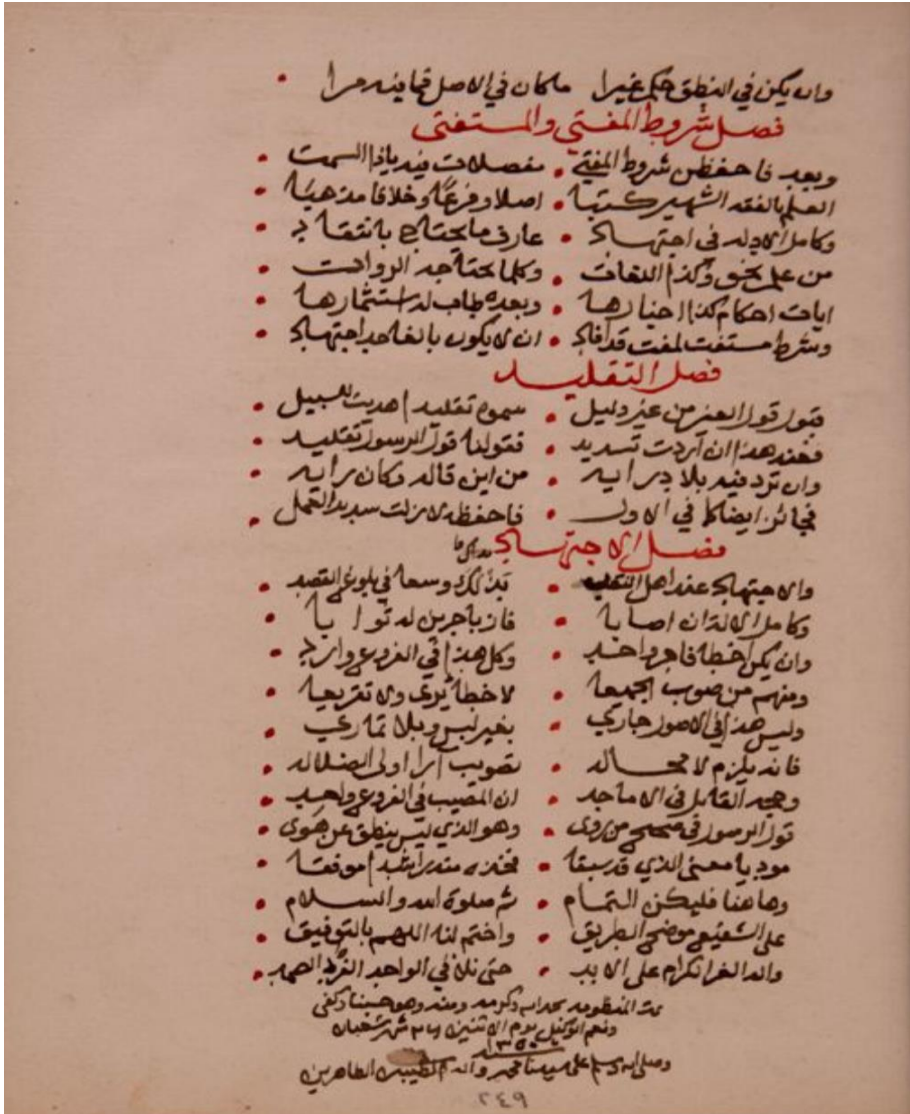 وان يكن في النطق حكم غيرا ما كان في الاصل فما فيه مرا
فصل شروط المفتي والمستفتي
وبعد فاحفظن شروط المفتي مفصلات فيه ياذا السمت
العلم بالفقه الشهير كتبا اصلا وفرعا وخلافا مذهبيا
وكامل الادله في اجتهاد عارف ما يحتاج بانتقاد
من علم نحو وكذا اللغات وكلما يحتاجه الرواة
ايات احكام كذا اخبارها وبعده طاب له استثمارها
وشرط مستفت لمفت قد افاد ان لا يكون بالغا حد اجتهاد
فصل التقليد
قبول قول الغير من غير دليل سموه تقليد اهديت للسبيل
فعند هذا ان اردت تسديد فقولنا قول الرسول تقليد
وان ترد فيه بلا درايه من اين قاله وكان رايه
فجائز ايضا كما في الاول فاحفظه لا زلت سديد العمل
فصل الاجتهاد
والاجتهاد عند اهل بذلك وسعا في بلوغ القصد
وكامل الالة ان اصابا فاز باجرين له ثوابا
وان يكن اخطا فاجر واحد وكل هذا في الفروع وارد
ومنهم من صوب الجميعا لا خطا يرى ولا تقريعا
وليس هذا في الاصول جاري بغير لبس وبلا تماري
فانه يلزم لا محاله تصويب ارا اولى الضلاله
وحجة القايل في الاماجد ان المصيب في الفروع واحد
قول الرسول في صحيح من روى وهو الذي ليس ينطق عن هوى
موديا معنى الذي قد سبقا فخذه منه راشدا موفقا
وهاهنا فليكن التمام ثم صلوة الله والسلام
على الشفيع موضح الطريق واختم لنا اللهم بالتوفيق
واله الغر الكرام على الابد حتى نلاقي الواحد الفرد الصمد
تمت المنظومه بحمد الله وكرمه ومنه وهو حسبنا وكفى
ونعم الوكيل يوم الاثنين شهر شعبان
سنة ١٣٥٠
وصلى الله وسلم على سيدنا محمد واله الطيبين الطاهرين
٢٤٩